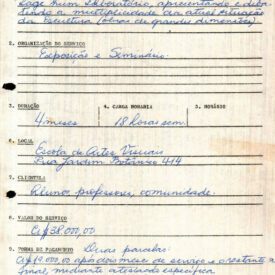 Lage num Laboratório, apresentando e deba-
tendo a multiplicidade da atual situação
da Escultura (obras de grandes dimensões)
2. ORGANIZAÇÃO DO SERVIÇO
Exposição e Seminário.
3. DURAÇÃO 4. CARGA HORARIA 5. HORÁRIO
4 meses 18 horas sem.
6. LOCAL
Escola de Artes Visuais
Rua Jardim Botânico 414
7. CLIENTELA
Alunos, professores, comunidade.
8. VALOR DO SERVIÇO
Cr$38.000,00
9. FORMA DE PAGAMENTO Duas parcelas:
Cr$19.000,00 após dois meses de serviço e o restante no
final, mediante atestado específico